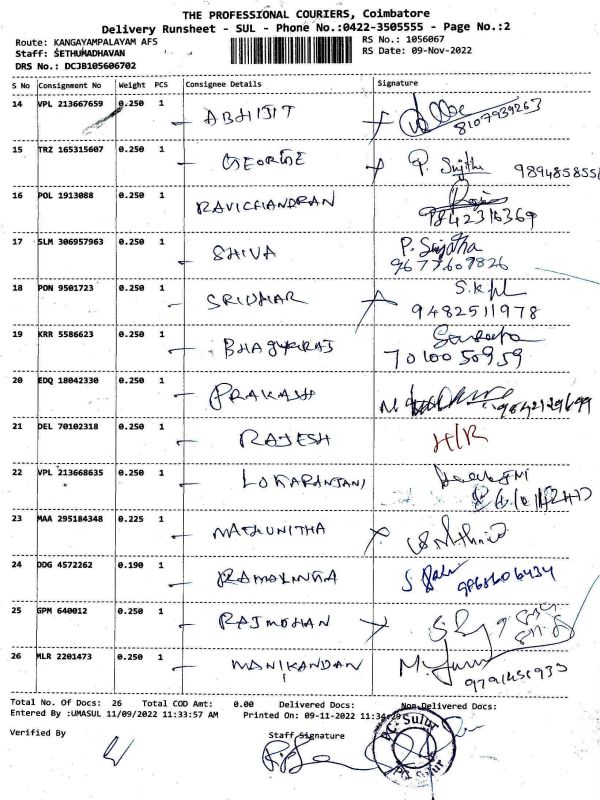 THE PROFESSIONAL COURIERS, Coimbatore
Delivery Runsheet - SUL - Phone No.:0422-3505555 - Page No.:2
Route: KANGAYAMPALAYAM AFS RS No.: 1056067
Staff: SETHUMADHAVAN RS Date: 09-Nov-2022
DRS No.: DCJB105606702
S No Consignment No Weight PCS Consignee Details Signature
14 VPL 213667659 0.250 1 ABHIJIT 8107939263
15 TRZ 165315607 0.250 1 GEORGE P. Sujitha 989485855
16 POL 1913088 0.250 1 RAVICHANDRAN 9842316369
17 SLM 306957963 0.250 1 SHIVA P. Sujatha 9677607826
18 PON 9501723 0.250 1 SRIDHAR 9482511978
19 KRR 5586623 0.250 1 BHAGYARAJ 7010050959
20 EDQ 18042330 0.250 1 PRAKASH 9842129699
21 DEL 70102318 0.250 1 RAJESH H/R
22 VPL 213668635 0.250 1 LOKARANJANI
23 MAA 295184348 0.225 1
24 DDG 4572262 0.190 1 RAMALINGA
25 GPM 640012 0.250 1 RAJMOHAN
26 MLR 2201473 0.250 1 MANIKANDAN
Total No. Of Docs: 26 Total COD Amt: 0.00 Delivered Docs: Non-Delivered Docs:
Entered By :UMASUL 11/09/2022 11:33:57 AM Printed On: 09-11-2022 11:34:29
Verified By Staff Signature